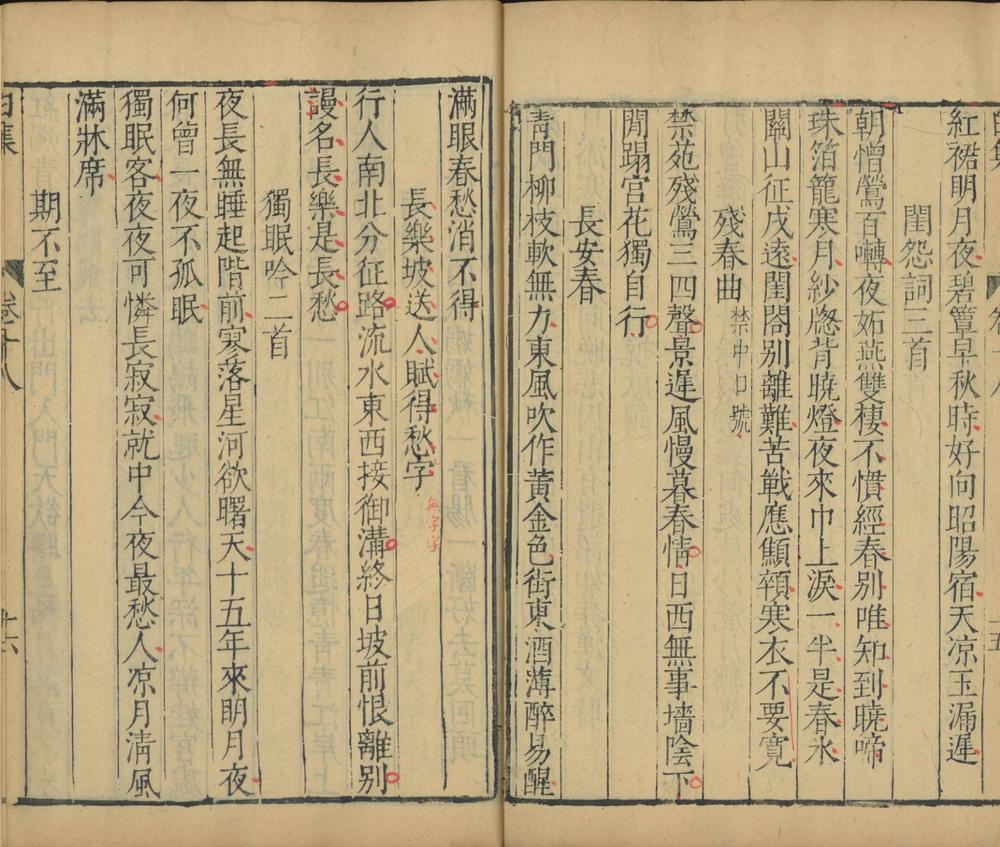 紅裙明月夜碧簟早秋時好向昭陽宿天凉玉漏遲
閨怨詞三首
朝憎鶯百囀夜妬燕雙棲不慣經春别唯知到曉啼
珠箔籠寒月紗牎背曉燈夜來巾上淚一半是春氷
關山征戍遠閨閤别離難苦戰應顦顇寒衣不要寛
殘春曲禁中口號
禁苑殘鶯三四聲景遲風慢暮春情日西無事墻陰下
閒蹋宫花獨自行
長安春
靑門柳枝軟無力東風吹作黃金色街東酒薄醉易醒
滿眼春愁消不得
長樂坡送人賦得愁字
無字字
行人南北分征路流水東西接御溝終日坡前恨離别
謾名長樂是長愁
獨眠吟二首
夜長無睡起階前寥落星河欲曙天十五年來明月夜
何曾一夜不孤眠
獨眠客夜夜可憐長寂寂就中今夜最愁人凉月清風
滿牀席
期不至
白集
卷十八
十六